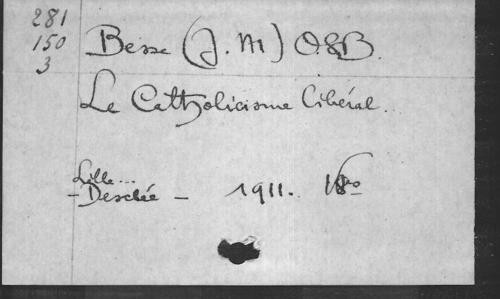 281
150
3
Besse (J. M) O.S.B.
Le Catholicisme Libéral.
Lille...
- Desclée - 1911.